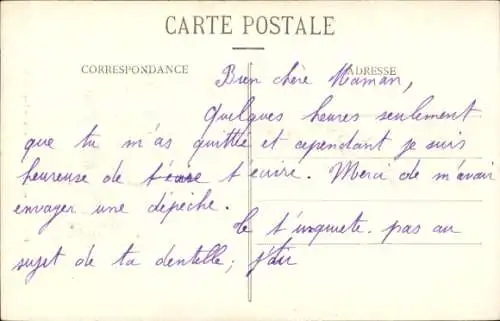 CARTE POSTALE
CORRESPONDANCE
ADRESSE
Bien chère Maman,
Quelques heures seulement
que tu m'as quittée et cependant je suis
heureuse de t'écrire. Merci de m'avoir
envoyer une dépêche. Ne t'inquiete pas au
sujet de ta dentelle; j'ai